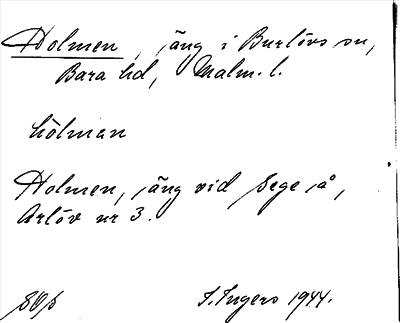 Holmen, äng i Burlövs sn,
Bara hd, Malm. l.
hòlman
Holmen, äng vid Sege å,
Arlöv nr 3.
I. Ingers 1944.